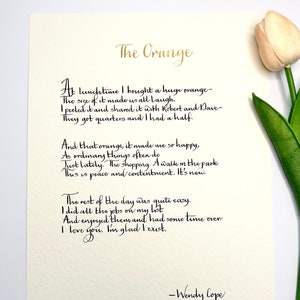 The Orange
At lunchtime I bought a huge orange—
The size of it made us all laugh.
I peeled it and shared it with Robert and Dave—
They got quarters and I had a half.
And that orange, it made me so happy,
As ordinary things often do
Just lately. The shopping. A walk in the park
This is peace and contentment. It's new.
The rest of the day was quite easy.
I did all the jobs on my list
And enjoyed them and had some time over
I love you. I'm glad I exist.
—Wendy Cope